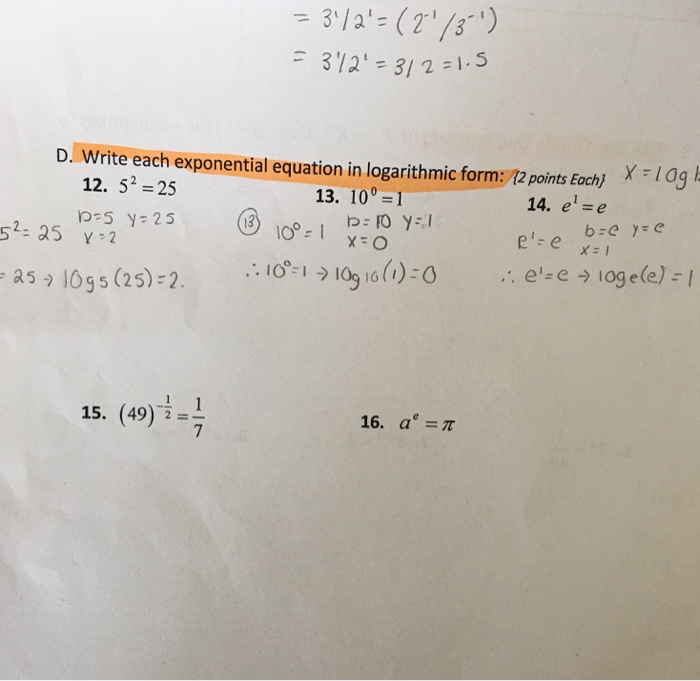 = 3¹/2¹ = (2⁻¹/3⁻¹)
= 3¹/2¹ = 3/2 = 1.5
D. Write each exponential equation in logarithmic form: {2 points Each} X = log b
12. 5² = 25
5² = 25 b=5 y=25
x=2
= 25 → log5(25)=2.
13. 10⁰ = 1
(13) 10⁰ = 1 b=10 y=1
x=0
∴ 10⁰=1 → log10(1)=0
14. e¹ = e
e¹=e b=e y=e
x=1
∴ e¹=e → loge(e)=1
15. (49)^(-1/2) = 1/7
16. aᵉ = π